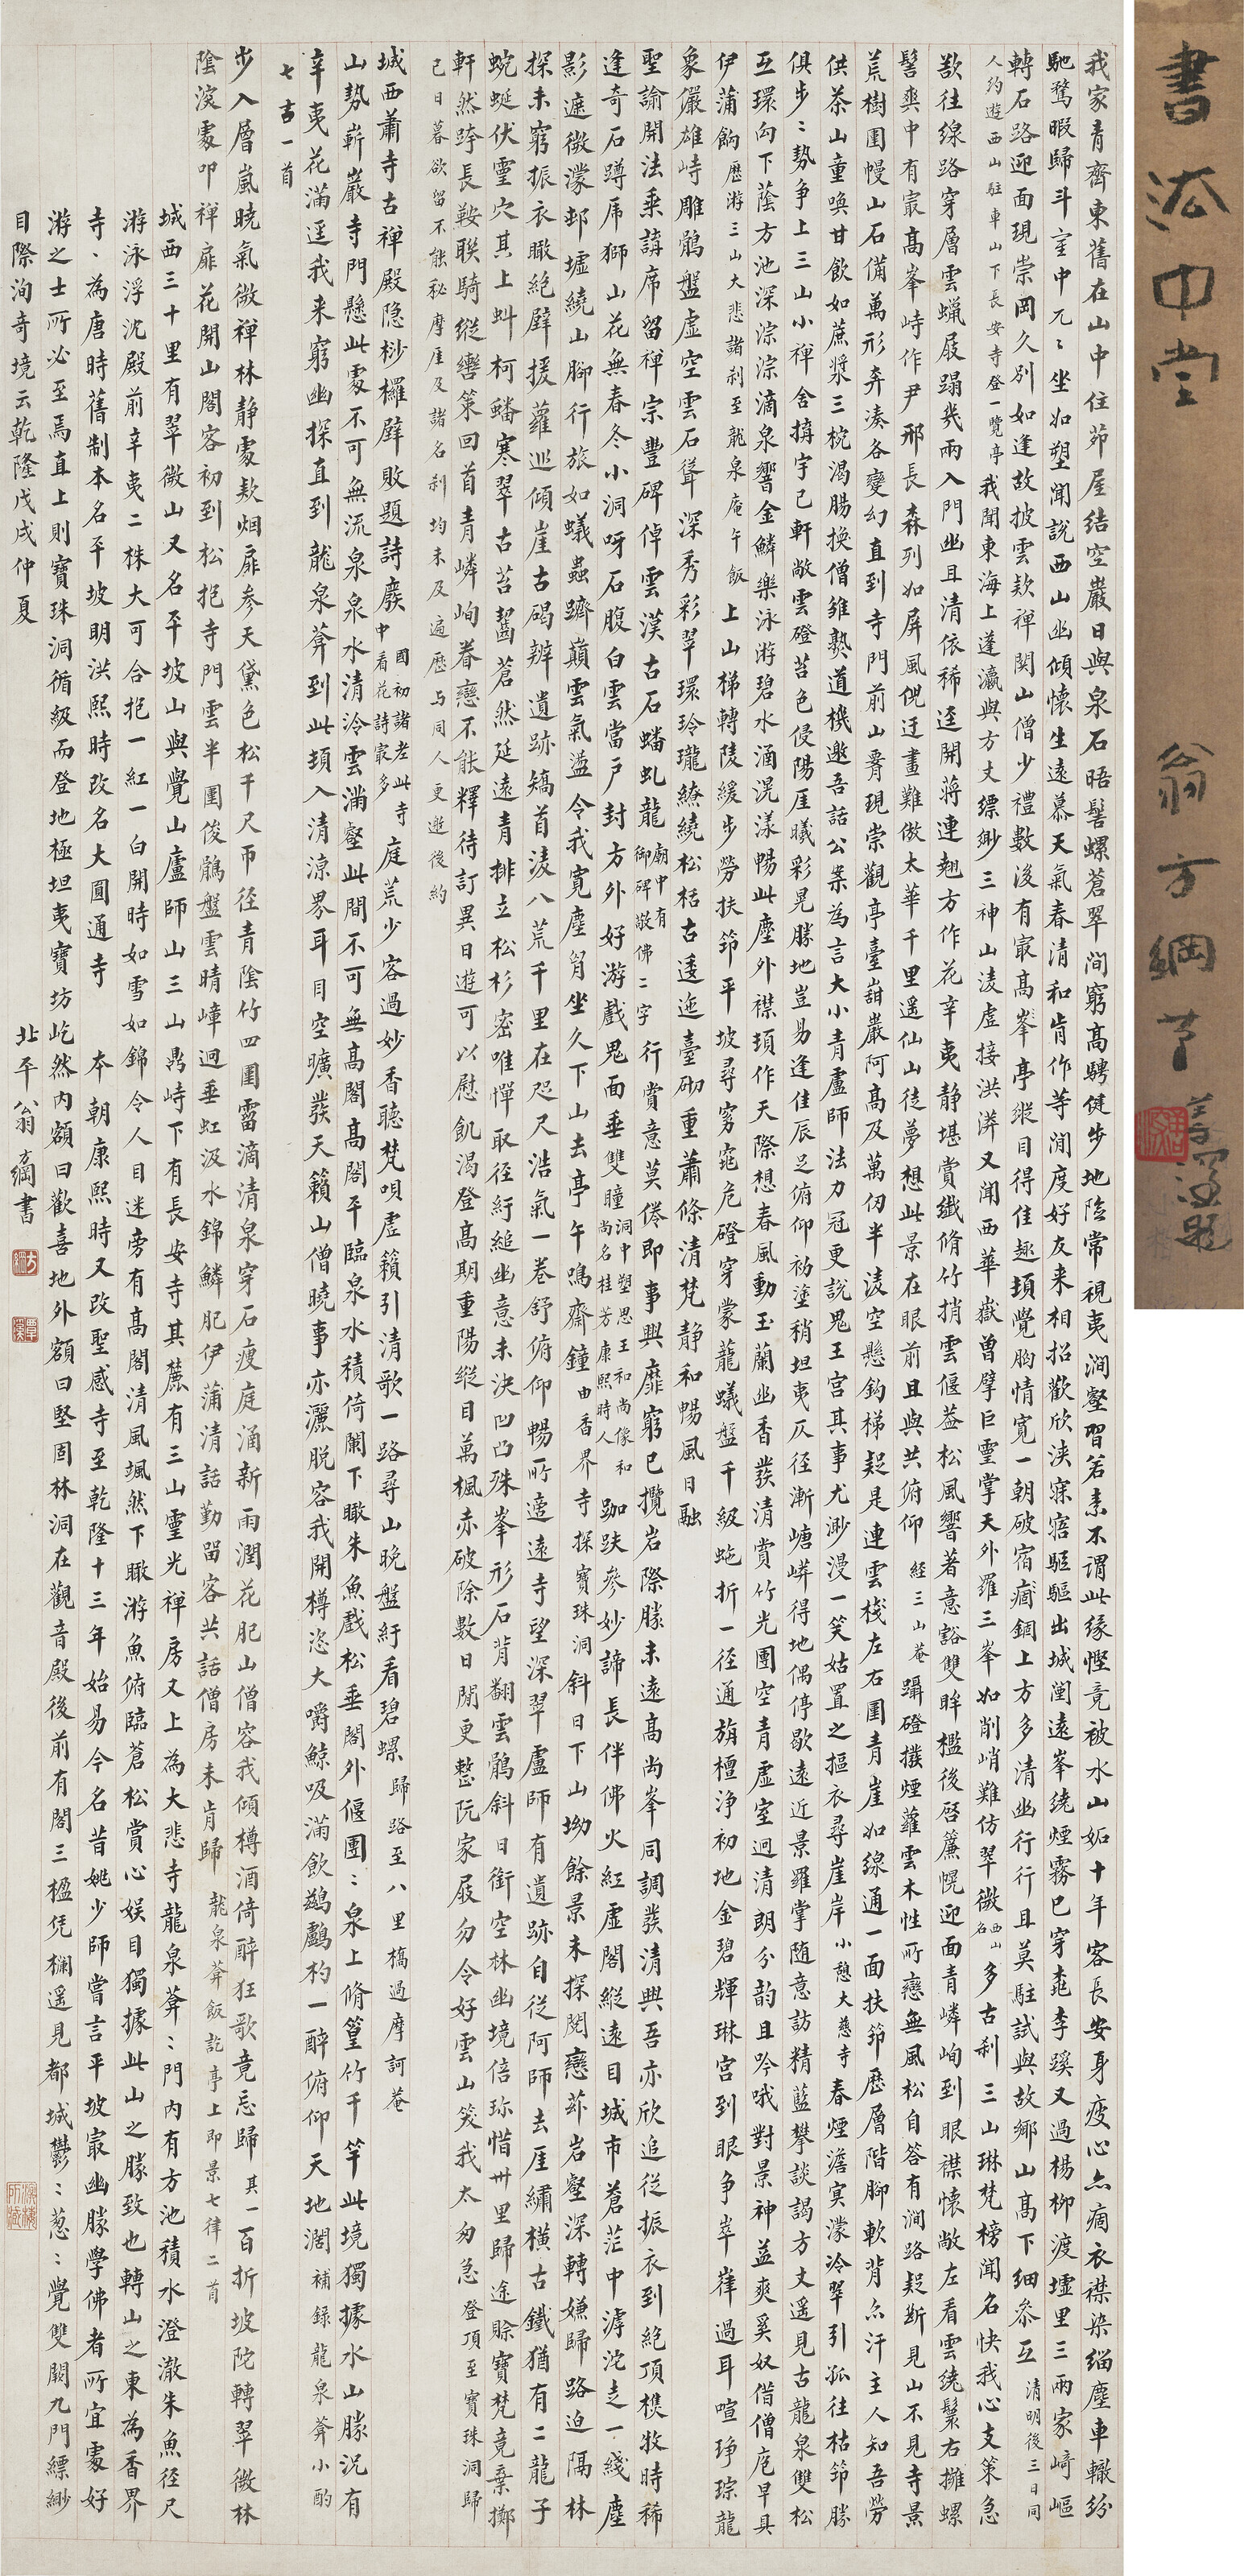 書法中堂 翁方綱
我家青齊東舊在山中住茆屋結空巖日與泉石晤髻螺蒼翠澗窮高騁健步地陰常視夷澗壑習若素不謂此緣慳竟被水山妬十年客長安身疲心亦痼衣襟染緇塵車轍紛
馳騖暇歸斗室中兀〻坐如塑聞說西山幽傾懷生遠慕天氣春清和肯作等閒度好友来相招歡欣浹寐寤駈驅出城闉遠峯繞煙霧已穿桃李蹊又過楊柳渡墟里三兩家崎嶇
轉石路迎面現崇岡久別如逢故披雲欵禪関山僧少禮數後有冣高峯亭縱目得佳趣頓覺胸情寛一朝破宿痼錮上方多清幽行行且莫駐試與故鄉山高下細叅互 清明後三日同
人約遊西山駐車山下長安寺登一覽亭 我聞東海上蓬瀛與方丈縹緲三神山淩虛接洪漭又聞西華嶽曽擘巨靈掌天外羅三峯如削峭難仿翠微西山名多古刹三山琳梵榜聞名快我心支策急
欲往線路穿層雲蠟屐蹋幾兩入門幽且清依稀逕開蔣連翹方作花辛夷静堪賞纖脩竹捎雲偃葢松風響著意豁雙眸檻後啓簾幌迎面青嶙峋到眼襟懷敞左看雲繞鬟右擁螺
髻爽中有冣髙峯峙作尹邢長森列如屏風倪迂畫難倣太華千里遥仙山徒夢想此景在眼前且與共俯仰 經三山菴 躡磴撥煙蘿雲木性所戀無風松自答有澗路疑斷見山不見寺景
荒樹圍幔山石備萬形奔湊各變幻直到寺門前山脊現崇觀亭臺嵌巖阿高及萬仞半淩空懸鈎梯疑是連雲棧左右圍青崖如線通一面扶筇歷層階脚軟背亦汗主人知吾勞
供茶山童喚甘飲如蔗漿三椀渴腸換僧雛熟道機邀吾話公案為言大小青盧師法力冠更說鬼王宫其事尤渺漫一笑姑置之摳衣尋崖岸 小憩大慈寺 春煙澹寞濛泠翠引孤往枯筇勝
俱步〻勢争上三山小禪舍搆宇已軒敞雲磴苔色侵陽厓曦彩晃勝地豈易逢佳辰足俯仰初塗稍坦夷仄径漸嵣嵣得地偶停歇遠近景羅掌随意訪精藍攀談謁方丈遥見古龍泉雙松
互環向下蔭方池深淙淙滴泉響金鱗樂泳游碧水涵滉漾暢此塵外襟頓作天際想春風動玉蘭幽香發清賞竹光團空青虚室迥清朗分韵且吟哦對景神益爽奚奴借僧庖早具
伊蒲餉 歷游三山大悲諸刹至龍泉庵午飯 上山梯轉陵緩步勞扶筇平坡尋窈窕危磴穿蒙蘢蟻盤千級虵折一径通旃檀淨初地金碧輝琳宫到眼争崒嵂過耳喧琤琮龍
象儼雄峙雕鶻盤虚空雲石聳深秀彩翠環玲瓏繚繞松栝古逶迤臺砌重蕭條清梵静和暢風日融
聖諭開法乗講席留禪宗豐碑倬雲漢古石蟠虬龍廟中有御碑敬佛二字行賞意莫倦即事興靡窮已攬岩際勝未遠高尚峯同調發清興吾亦欣追從振衣到絶頂樵牧時稀
逢奇石蹲席獅山花無春冬小洞呀石腹白雲當戸封方外好游戲鬼面垂雙瞳洞中塑思王和尚像和尚名桂芳康熙時人 跏趺參妙諦長伴佛火紅虚閣縱遠目城市蒼茫中滹沱走一綫塵
影遮微濛邨墟繞山脚行旅如蟻蟲躋巔雲氣盪令我寛塵胷坐久下山去亭午鳴齋鐘 由香界寺探寶珠洞 斜日下山坳餘景未探閱戀茲岩壑深轉嫌歸路迫隔林
探未窮振衣瞰絶壁援蘿巡傾崖古碣辨遺跡矯首淩八荒千里在咫尺浩氣一卷舒俯仰暢所適遠寺望深翠盧師有遺跡自從阿師去厓繡橫古鐵猶有二龍子
蜿蜒伏靈穴其上虯柯蟠寒翠古苔齧蒼然延遠青排立松杉密唯憚取径紆縋幽意未決凹凸殊峯形石背翻雲鶻斜日銜空林幽境倍珎惜卅里歸途賒寶梵竟棄擲
軒然跨長鞍聯騎縱轡策回首青嶙峋眷戀不能釋待訂異日遊可以慰飢渴登髙期重陽縱目萬楓赤破除數日閒更整阮家屐勿令好雲山笑我太匆急 登頂至寳珠洞歸
已日暮欲留不能秘摩厓及諸名刹均未及遍歷与同人更遊後約
城西蕭寺古禪殿隐桫欏壁敗題詩廢國初諸老此寺中看花詩冣多庭荒少客過妙香聴梵唄虚籟引清歌一路尋山晚盤紆看碧螺 歸路至八里橋過摩訶菴
山勢嶄巖寺門懸此處不可無流泉泉水清泠雲滿壑此間不可無髙閣髙閣平臨泉水積倚闌下瞰朱魚戲松垂閣外偃團〻泉上脩篁竹千竿此境獨據水山勝況有
辛夷花滿逕我来窮幽探直到龍泉菴到此頓入清涼界耳目空曠發天籟山僧曉事亦灑脱容我開樽恣大嚼鯨吸滿飲鸕鶿杓一醉俯仰天地濶 補録龍泉菴小酌
七古一首
步入層嵐曉氣微禪林静處欵烟扉参天黛色松千尺帀径青陰竹四圍霤滴清泉穿石瘦庭涵新雨潤花肥山僧容我傾樽酒倚醉狂歌竟忘歸 其一 百折坡陀轉翠微林
陰深處叩禪扉花開山閣客初到松抱寺門雲半圍俊鶻盤雲晴嶂迥垂虹汲水錦鱗肥伊蒲清話勤留客共話僧房未肯歸 龍泉菴飯訖亭上即景七律二首
城西三十里有翠微山又名平坡山與覺山盧師山三山鼎峙下有長安寺其麓有三山靈光禪房又上為大悲寺龍泉菴〻門內有方池積水澄澈朱魚径尺
游泳浮沈殿前辛夷二株大可合抱一紅一白開時如雪如錦令人目迷旁有髙閣清風颯然下瞰游魚俯臨蒼松賞心娱目獨據此山之勝致也轉山之東為香界
寺、為唐時舊制本名平坡明洪熙時改名大圓通寺 本朝康熙時又改聖感寺至乾隆十三年始易今名昔姚少師嘗言平坡冣幽勝學佛者所宜處好
游之士所必至焉直上則寳珠洞循級而登地極坦夷寶坊屹然內額曰歡喜地外額曰堅固林洞在觀音殿後前有閣三楹凭欄遥見都城鬱〻葱〻覺雙闕九門縹緲
目際洵奇境云乾隆戊戌仲夏 北平翁方綱書